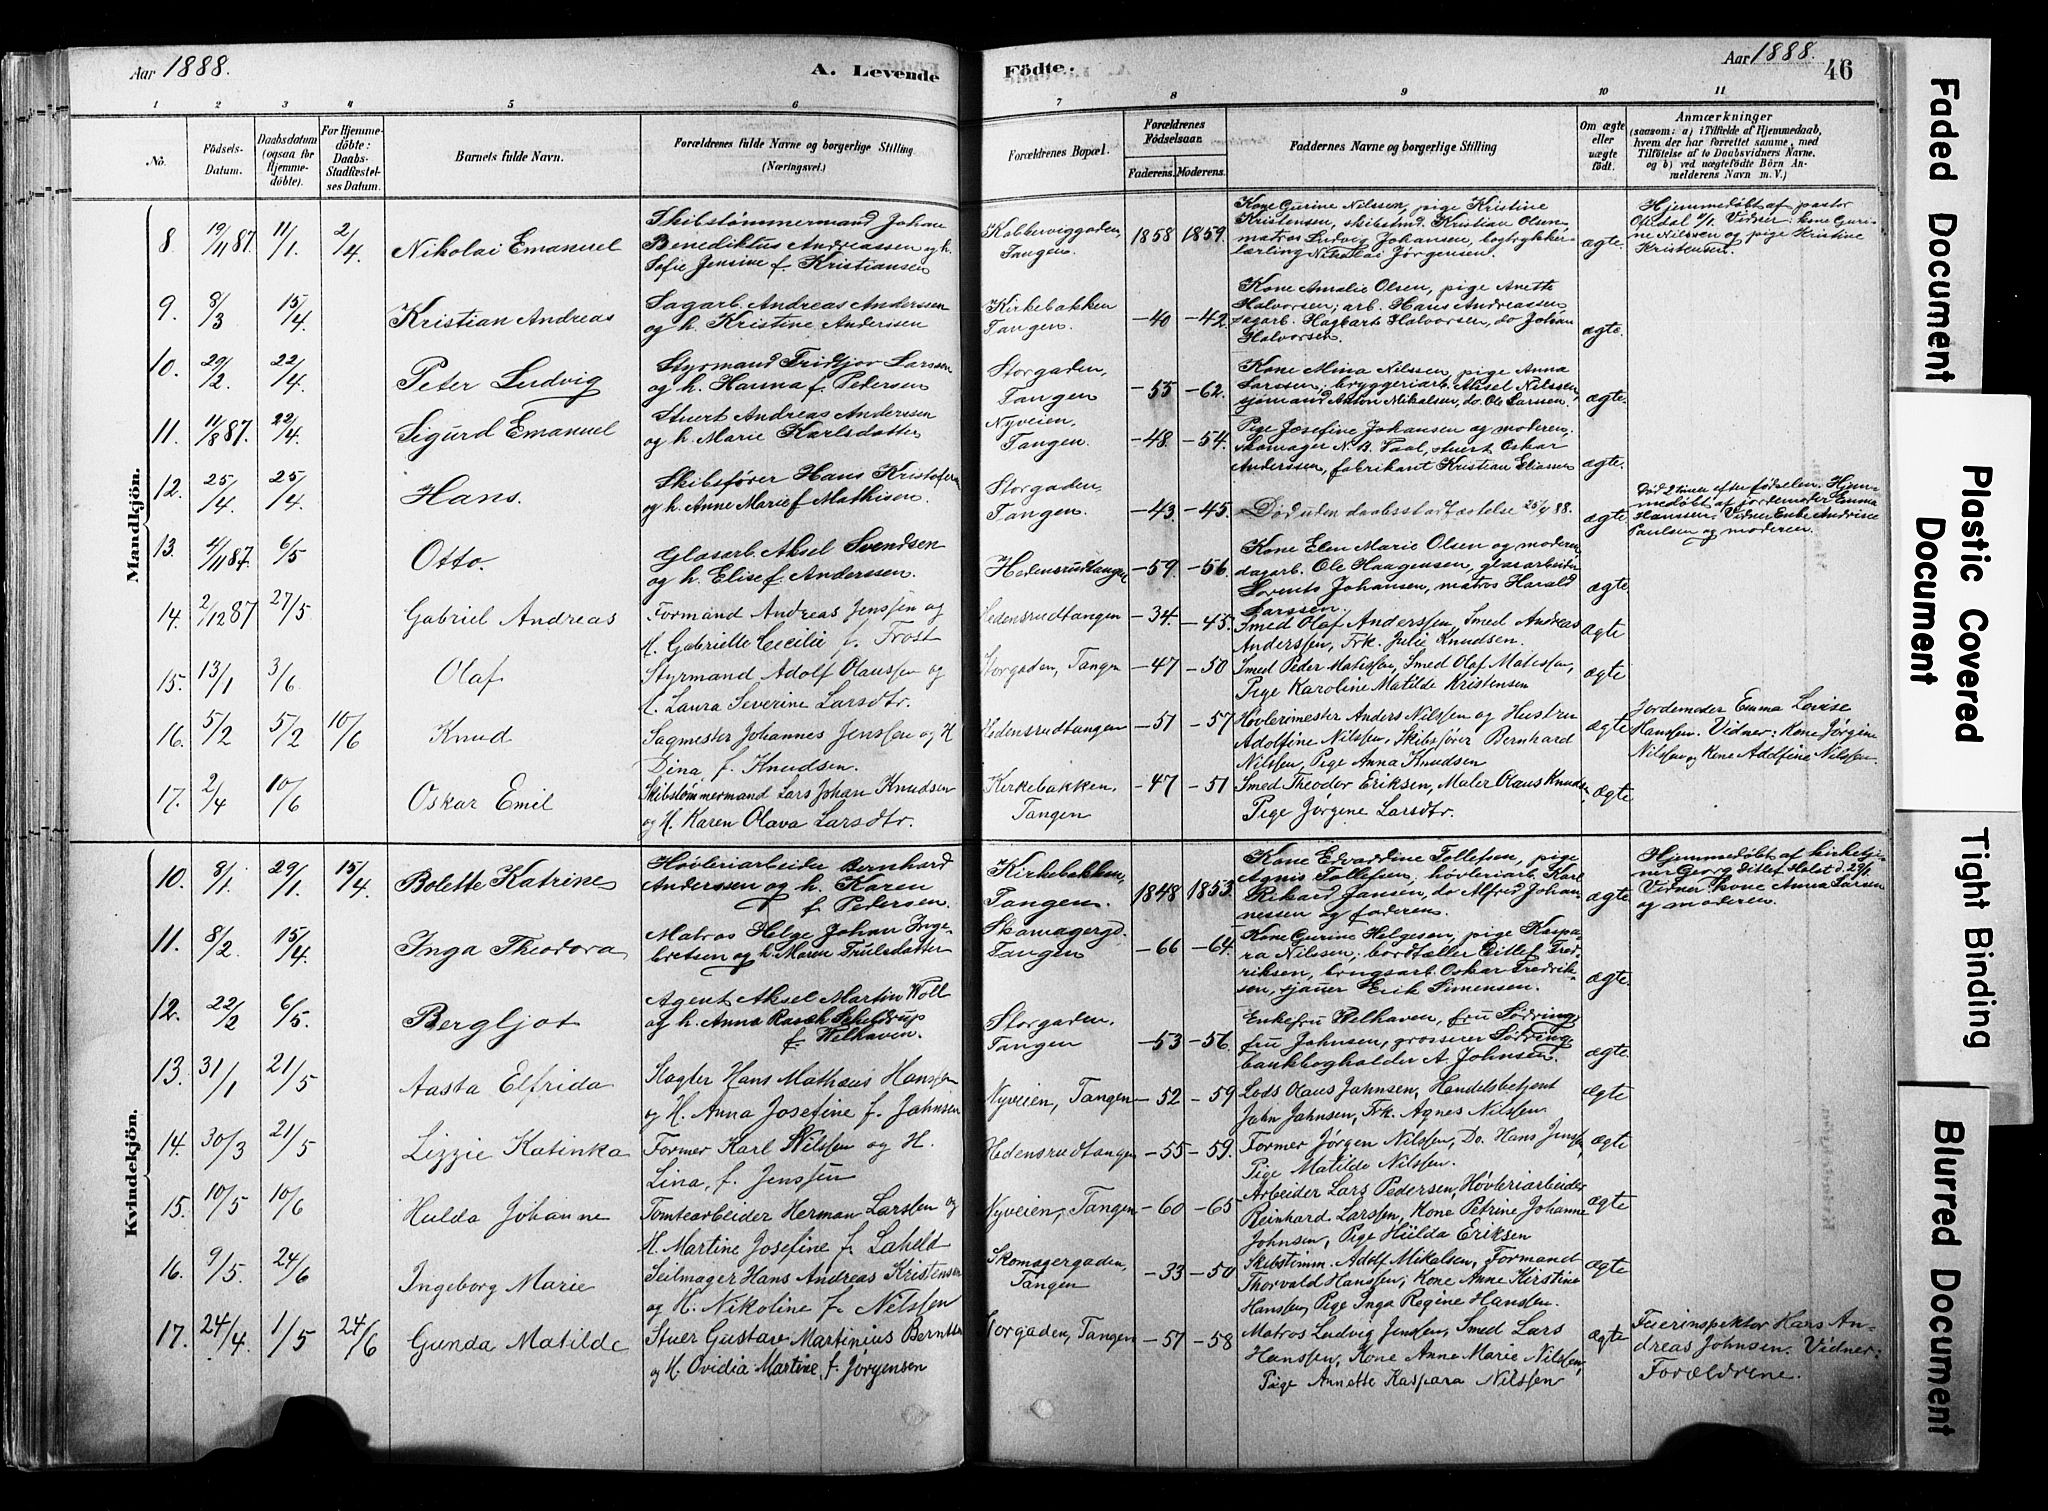 Aar 1888.
A. Levende
Födte.
Aar 1888.
46
1 2 3 4 5 6
7 8 9 10 11
No.
Födsels-Datum.
Daabsdatum (ogsaa for Hjemme-döbte).
For Hjemme-döbte: Daabs-Stadfæstel-ses Datum.
Barnets fulde Navn.
Forældrenes fulde Navne og borgerlige Stilling
(Næringsvei.)
Forældrenes Bopæl.
Forældrenes Födselsaar.
Faderens. Moderens.
Faddernes Navne og borgerlige Stilling
Om ægte eller uægte födt.
Anmærkninger
(saasom: a) i Tilfælde af Hjemmedaab,
hvem der har forrettet samme, med
Tilföielse af to Daabsvidners Navne,
og b) ved uægtefödte Börn An-
melderens Navn m. V.)
Mandkjön.
8. 19/11 87. 11/1. 2/4. Nikolai Emanuel
Skibstømmermand Johan
Benediktus Andreassen og h.
Sofie Jensine f. Kristiansen
Kobberviggaden,
Tangen.
1858 1859.
Kone Gurine Nilssen, pige Kristine
Kristensen, skibstmd. Kristian Olsen
matros Ludvig Johansen, bogtrykker-
lærling Nikolai Jörgensen.
ægte.
Hjemmedøbt af pastor
Vidner: kone Guri-
ne Nilssen og pige Kristine
Kristensen.
9. 8/3 15/4. Kristian Andreas
Sagarb. Andreas Anderssen
og h. Kristine Andersen
Kirkebakken
Tangen.
-40 -42.
Kone Amalie Olsen, pige Anette
Halvorsen; arb. Hans Andreassen,
sagarb. Hagbart Halvorsen, do Johan
Halvorsen.
ægte.
10. 29/2. 22/4. Peter Ludvig
Styrmand Fridtjov Larssen
og h. Hanna f. Pedersen
Storgaden,
Tangen
-55 -62.
Kone Mina Nilssen, pige Anna
Larssen, bryggeriarb. Aksel Nilssen,
sjømand Anton Mikalsen, do. Ole Larssen.
ægte.
11. 11/8 87. 22/4. Sigurd Emanuel
Stuert Andreas Anderssen
og h. Marie Karlsdatter
Nyveien,
Tangen.
-48. -54.
Pige Josefine Johansen og moderen,
Skomager N. B. Taal, stuert Oskar
Anderssen, fabrikant Kristian Eliassen
ægte.
12. 25/4. 25/4. Hans.
Skibsfører Hans Kristofersen
og h. Anne Marie f Mathisen.
Storgaden,
Tangen.
-43. -45.
Død uden daabsstadfæstelse 25/4 88.
ægte
Død 2 timer efter fødselen. Hjem-
medøbt af jordemoder Emma
Hanssen; Vidner Enke Andrine
Paulsen og moderen.
13. 4/11 87. 6/5. Otto.
Glasarb. Aksel Svendsen
og h. Elise f. Anderssen.
Hedensrudtangen
-59. -56.
Kone Elen Marie Olsen og moderen,
dagarb. Ole Haagensen, glasarbeider
Lorents Johansen, matros Harald
Larssen.
ægte.
14. 2/12 87 27/5. Gabriel Andreas
Formand Andreas Jenssen og
H. Gabrielle Cecilie f. Frost
Hedensrudtangen
-34. -45.
Smed Olaf Anderssen, Smed Andreas
Anderssen, Frk. Julie Knudsen.
ægte
15. 13/1 3/6 Olaf
Styrmand Adolf Olaussen og
H. Laura Severine Larsdtr.
Storgaden, Tangen
-47 -50
Smed Peder Matissen, Smed Olaf Matissen,
Pige Karoline Matilde Kristensen
ægte
16. 5/2 5/2 10/6 Knud
Sagmester Johannes Jenssen og H
Dina, f. Knudsen.
Hedensrudtangen
-51 -57
Høvlerimester Anders Nilssen og Hustru
Adolfine Nilssen, Skibsfører Bernhard
Nilssen, Pige Anna Knudsen
ægte
Jordemoder Emma Lovise
Hanssen. Vidner: Kone Jørgine
Nilssen og Kone Adolfine Nilssen.
17. 2/4 10/6 Oskar Emil
Skibstømmermand Lars Johan Knudsen
og H. Karen Olava Larsdtr.
Kirkebakken,
Tangen
-47 -51
Smed Theodor Eriksen, Maler Olaus Knudsen,
Pige Jørgine Larsdtr.
ægte
Kvindekjön.
10. 8/1. 29/1. 15/4. Bolette Katrine
Høvleriarbeider Bernhard
Anderssen og h. Karen
f. Pedersen.
Kirkebakken,
Tangen.
1848 1853.
Kone Edvardine Tollefsen, pige
Agnis Tollefsen, høvleriarb. Karl
Rikard Jansen, do Alfred Johan-
nessen og faderen.
ægte
Hjemmedøbt af kirketje-
ner Georg Ditlef Holst d. 29/1.
Vidner Kone Anna Larsen
og moderen.
11. 8/2. 15/4. Inga Theodora
Matros Helge Johan Inge-
bretsen og h. Maren Trulsdatter
Skomagergd.
Tangen
-66 -64.
Kone Gurine Helgesen, pige Kaspa-
ra Nilssen; bordtæller Ditlef Fred-
riksen, brugsarb. Oskar Fredrik-
sen, sjauer Erik Simensen.
ægte.
12. 22/2 6/5. Bergljot
Agent Aksel Martin Woll
og h. Anna Rasch Scheldrup
f. Welhaven.
Storgaden,
Tangen
-53 -56.
Enkefru Welhaven, fru Sødring,
fru Johnsen, grosserer Sødring
bankbogholder A. Johnsen.
ægte
13. 31/1 21/5 Aasta Elfrida
Slagter Hans Mathæus Hanssen
og H. Anna Josefine f. Jahnsen
Nyveien, Tangen
-52 -59
Lods Olaus Jahnsen, Handelsbetjent
John Jahnsen, Frk. Agnes Nilssen.
ægte
14. 30/3 21/5 Lizzie Katinka
Former Karl Nilssen og H.
Lina, f. Jenssen
Hedensrudtangen
-55 -59.
Former Jørgen Nilssen, Do. Hans Jenssen,
Pige Matilde Nilssen.
ægte
15. 10/5 10/6 Hulda Johanne
Tomtearbeider Herman Larssen og
H. Martine Josefine f. Laheld
Nyveien, Tangen
-60 -65
Arbeider Lars Pedersen, Høvleriarbeider
Reinhard Larssen, Kone Petrine Johanne
Johnsen, Pige Hulda Eriksen
ægte
16. 9/5. 24/6 Ingeborg Marie
Seilmager Hans Andreas Kristensen
og H. Nikoline f. Nilssen
Skomagergaden,
Tangen
-33 -50
Skibstömm. Adolf Mikalsen, Formand
Thorvald Hanssen, Kone Anne Kirstine
Hanssen, Pige Inga Regine Hanssen.
ægte
17. 24/4. 1/5 24/6 Gunda Matilde
Stuer Gustav Martinius Berntsen
og H. Ovidia Martine, f. Jørgensen
Storgaden, Tangen
-57 -58
Matros Ludvig Jenssen, Smed Lars
Hanssen, Kone Anne Marie Nilssen,
Pige Annette Kaspara Nilssen
ægte
Feierinspektør Hans An-
dreas Johnsen. Vidner:
Forældrene.
Faded Document
Plastic Covered Document
Tight Binding
Blurred Document